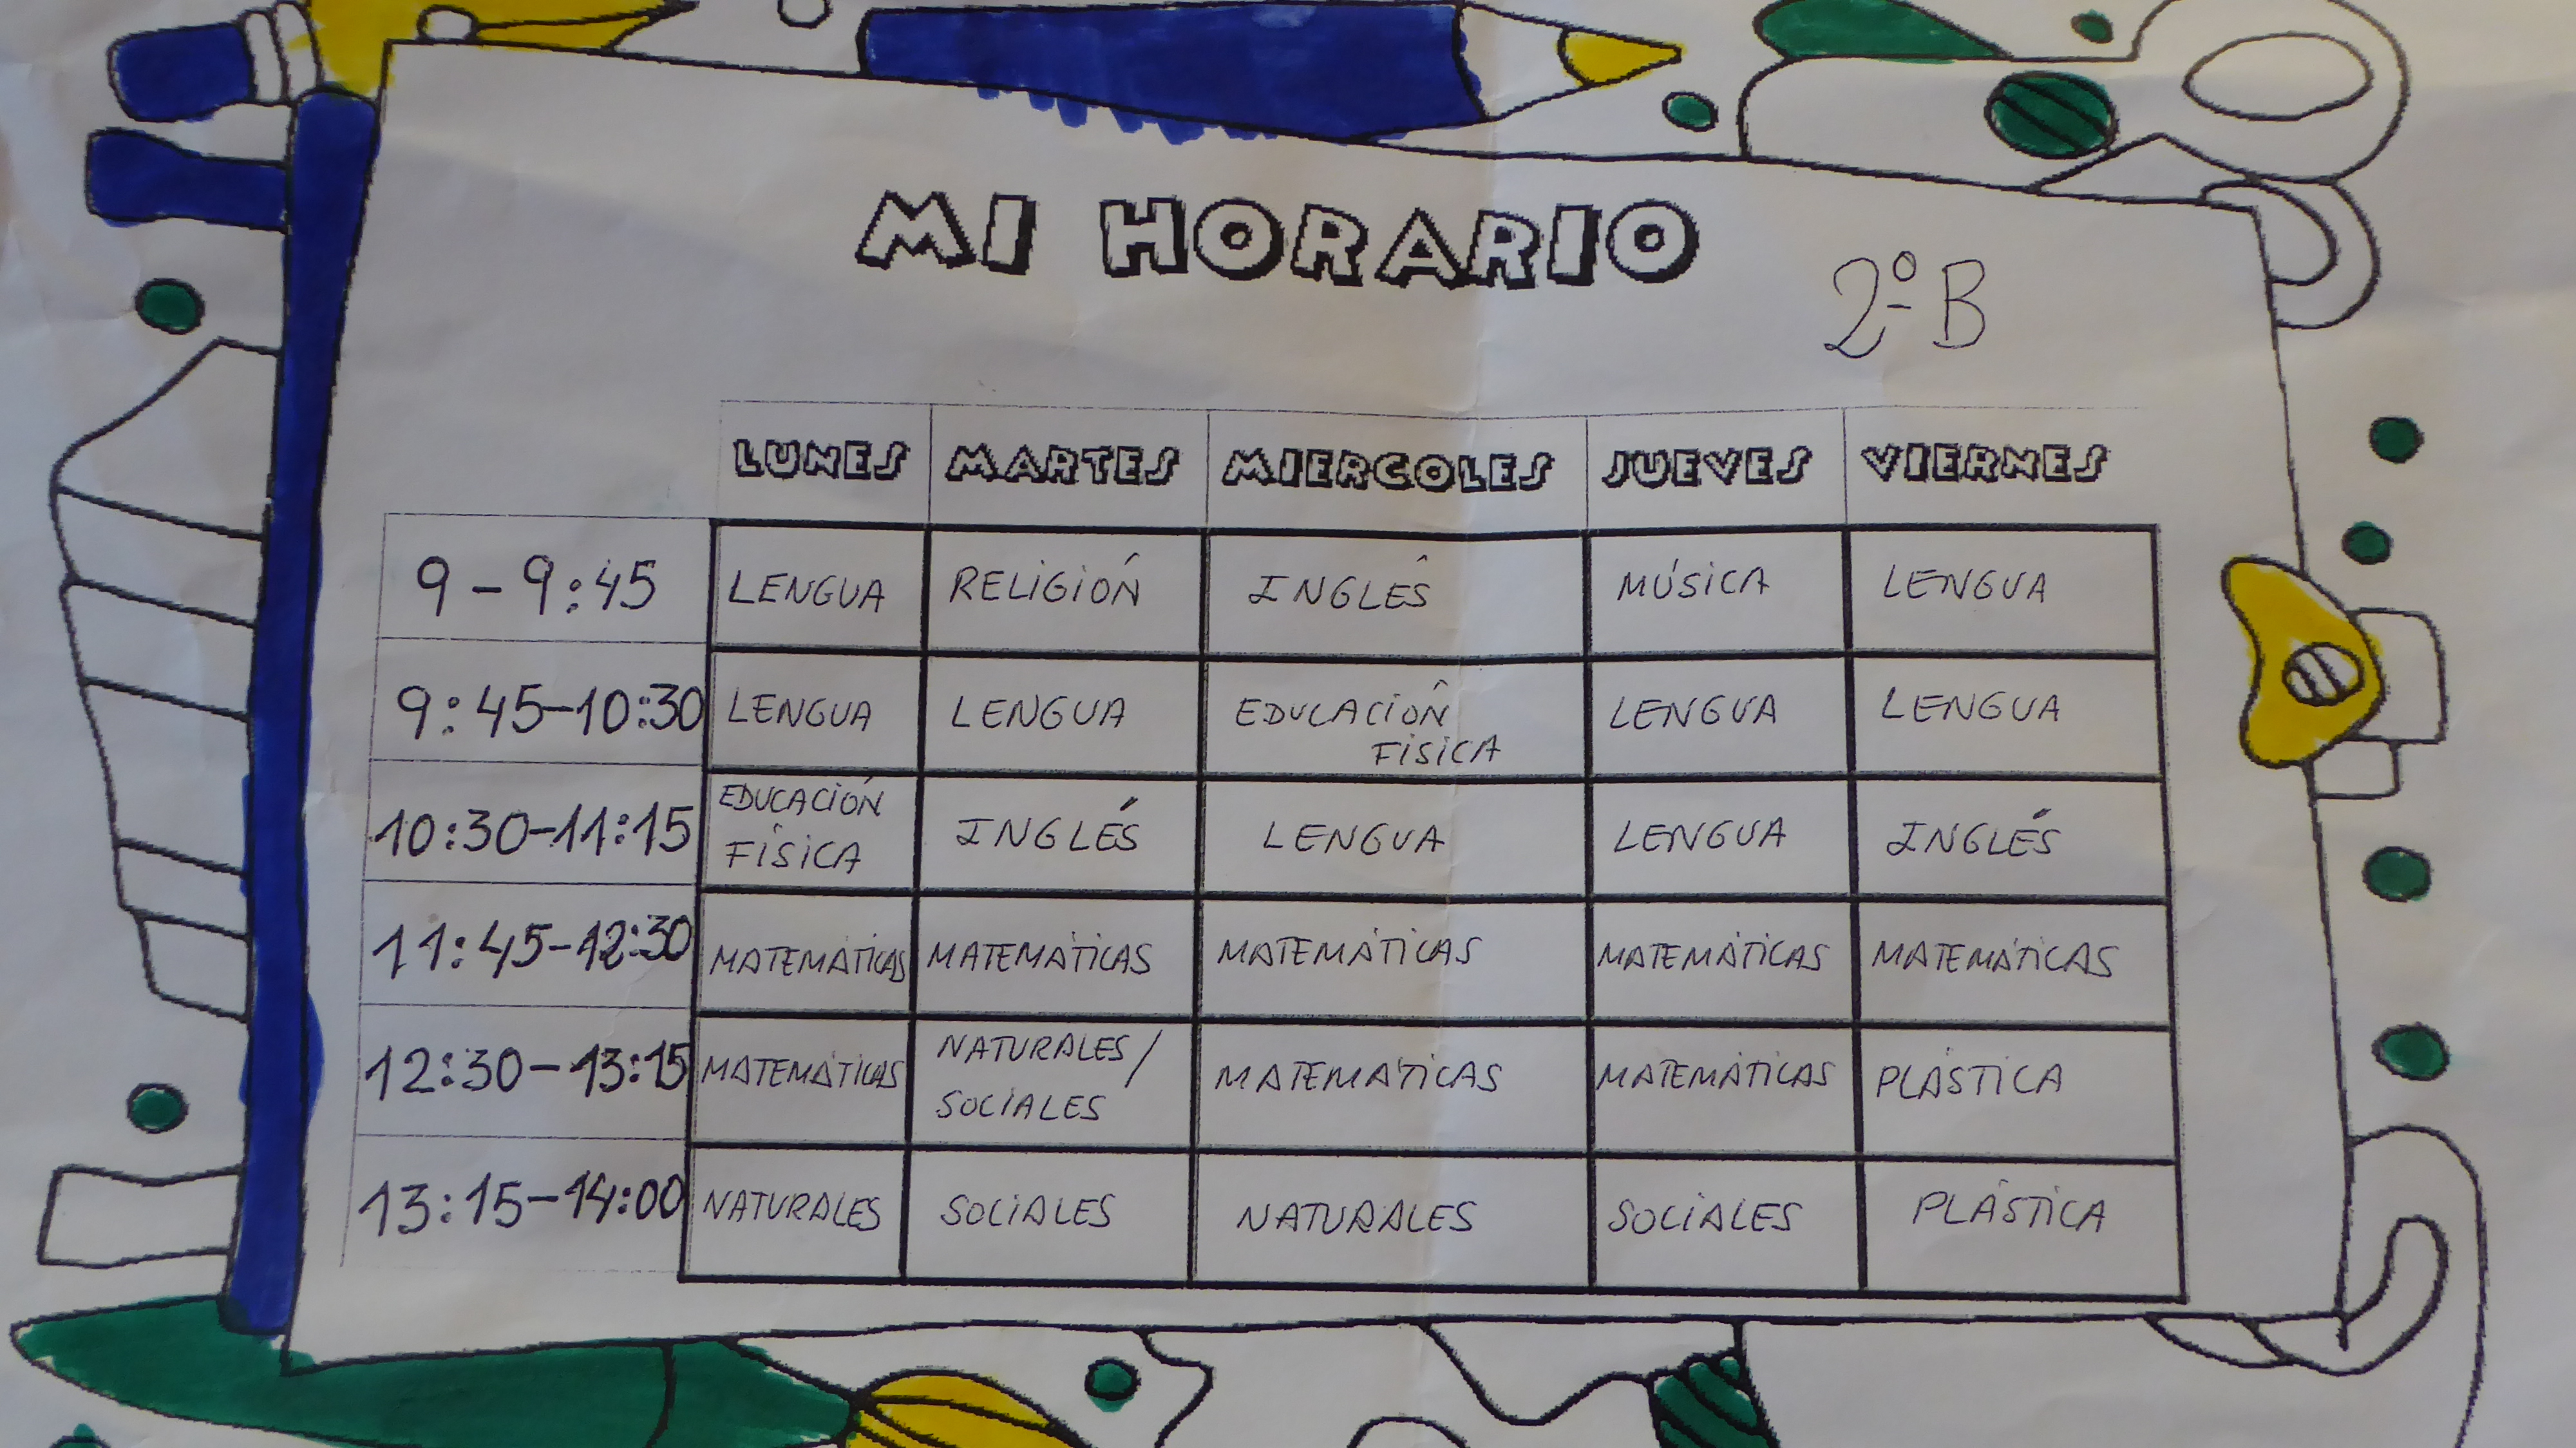 MI HORARIO
2º B
LUNES MARTES MIERCOLES JUEVES VIERNES
9-9:45 LENGUA RELIGIÓN INGLÉS MÚSICA LENGUA
9:45-10:30 LENGUA LENGUA EDUCACIÓN FÍSICA LENGUA LENGUA
10:30-11:15 EDUCACIÓN FÍSICA INGLÉS LENGUA LENGUA INGLÉS
11:45-12:30 MATEMÁTICAS MATEMÁTICAS MATEMÁTICAS MATEMÁTICAS MATEMÁTICAS
12:30-13:15 MATEMÁTICAS NATURALES/ SOCIALES MATEMÁTICAS MATEMÁTICAS PLÁSTICA
13:15-14:00 NATURALES SOCIALES NATURALES SOCIALES PLÁSTICA